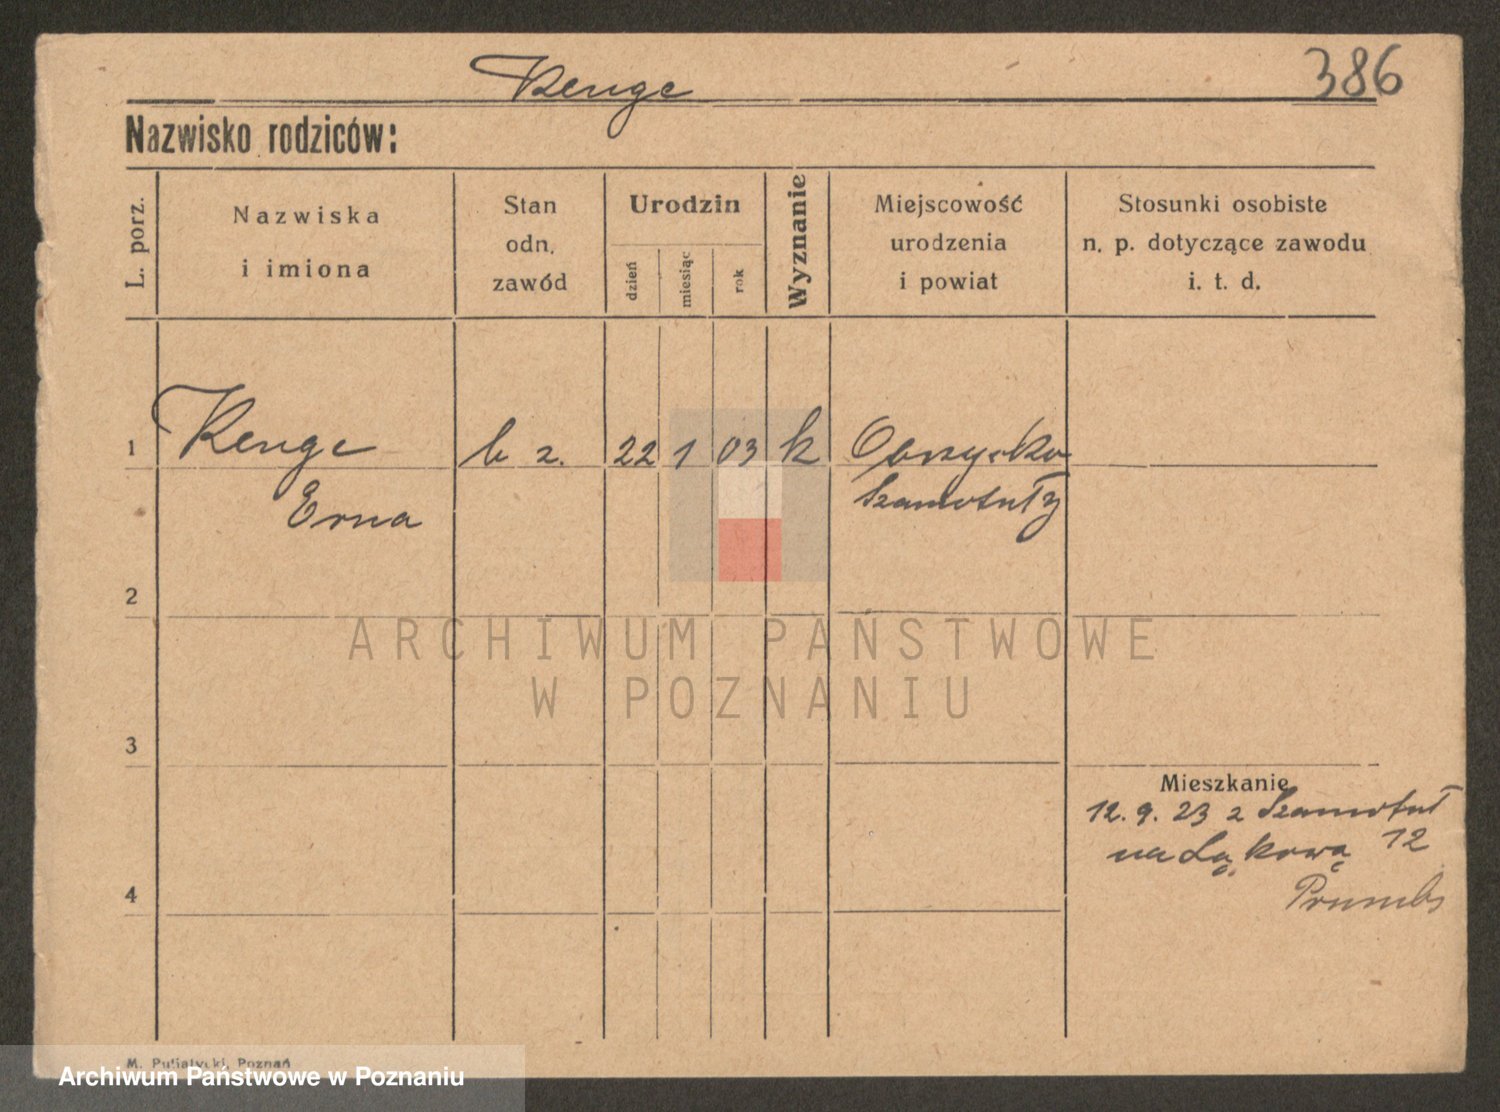 Kenge
386
Nazwisko rodziców:
L. porz.
Nazwiska
i imiona
Stan
odn.
zawód
Urodzin
dzień
miesiąc
rok
Wyznanie
Miejscowość
urodzenia
i powiat
Stosunki osobiste
n. p. dotyczące zawodu
i. t. d.
1 Kenge b z. 22 1 03 k Obrzycko
Erna Szamotuły
2
ARCHIWUM PAŃSTWOWE
W POZNANIU
3
Mieszkanie
12. 9. 23 z Szamotuł
na Łąkową 12
4
M. Putiatycki, Poznań
Archiwum Państwowe w Poznaniu